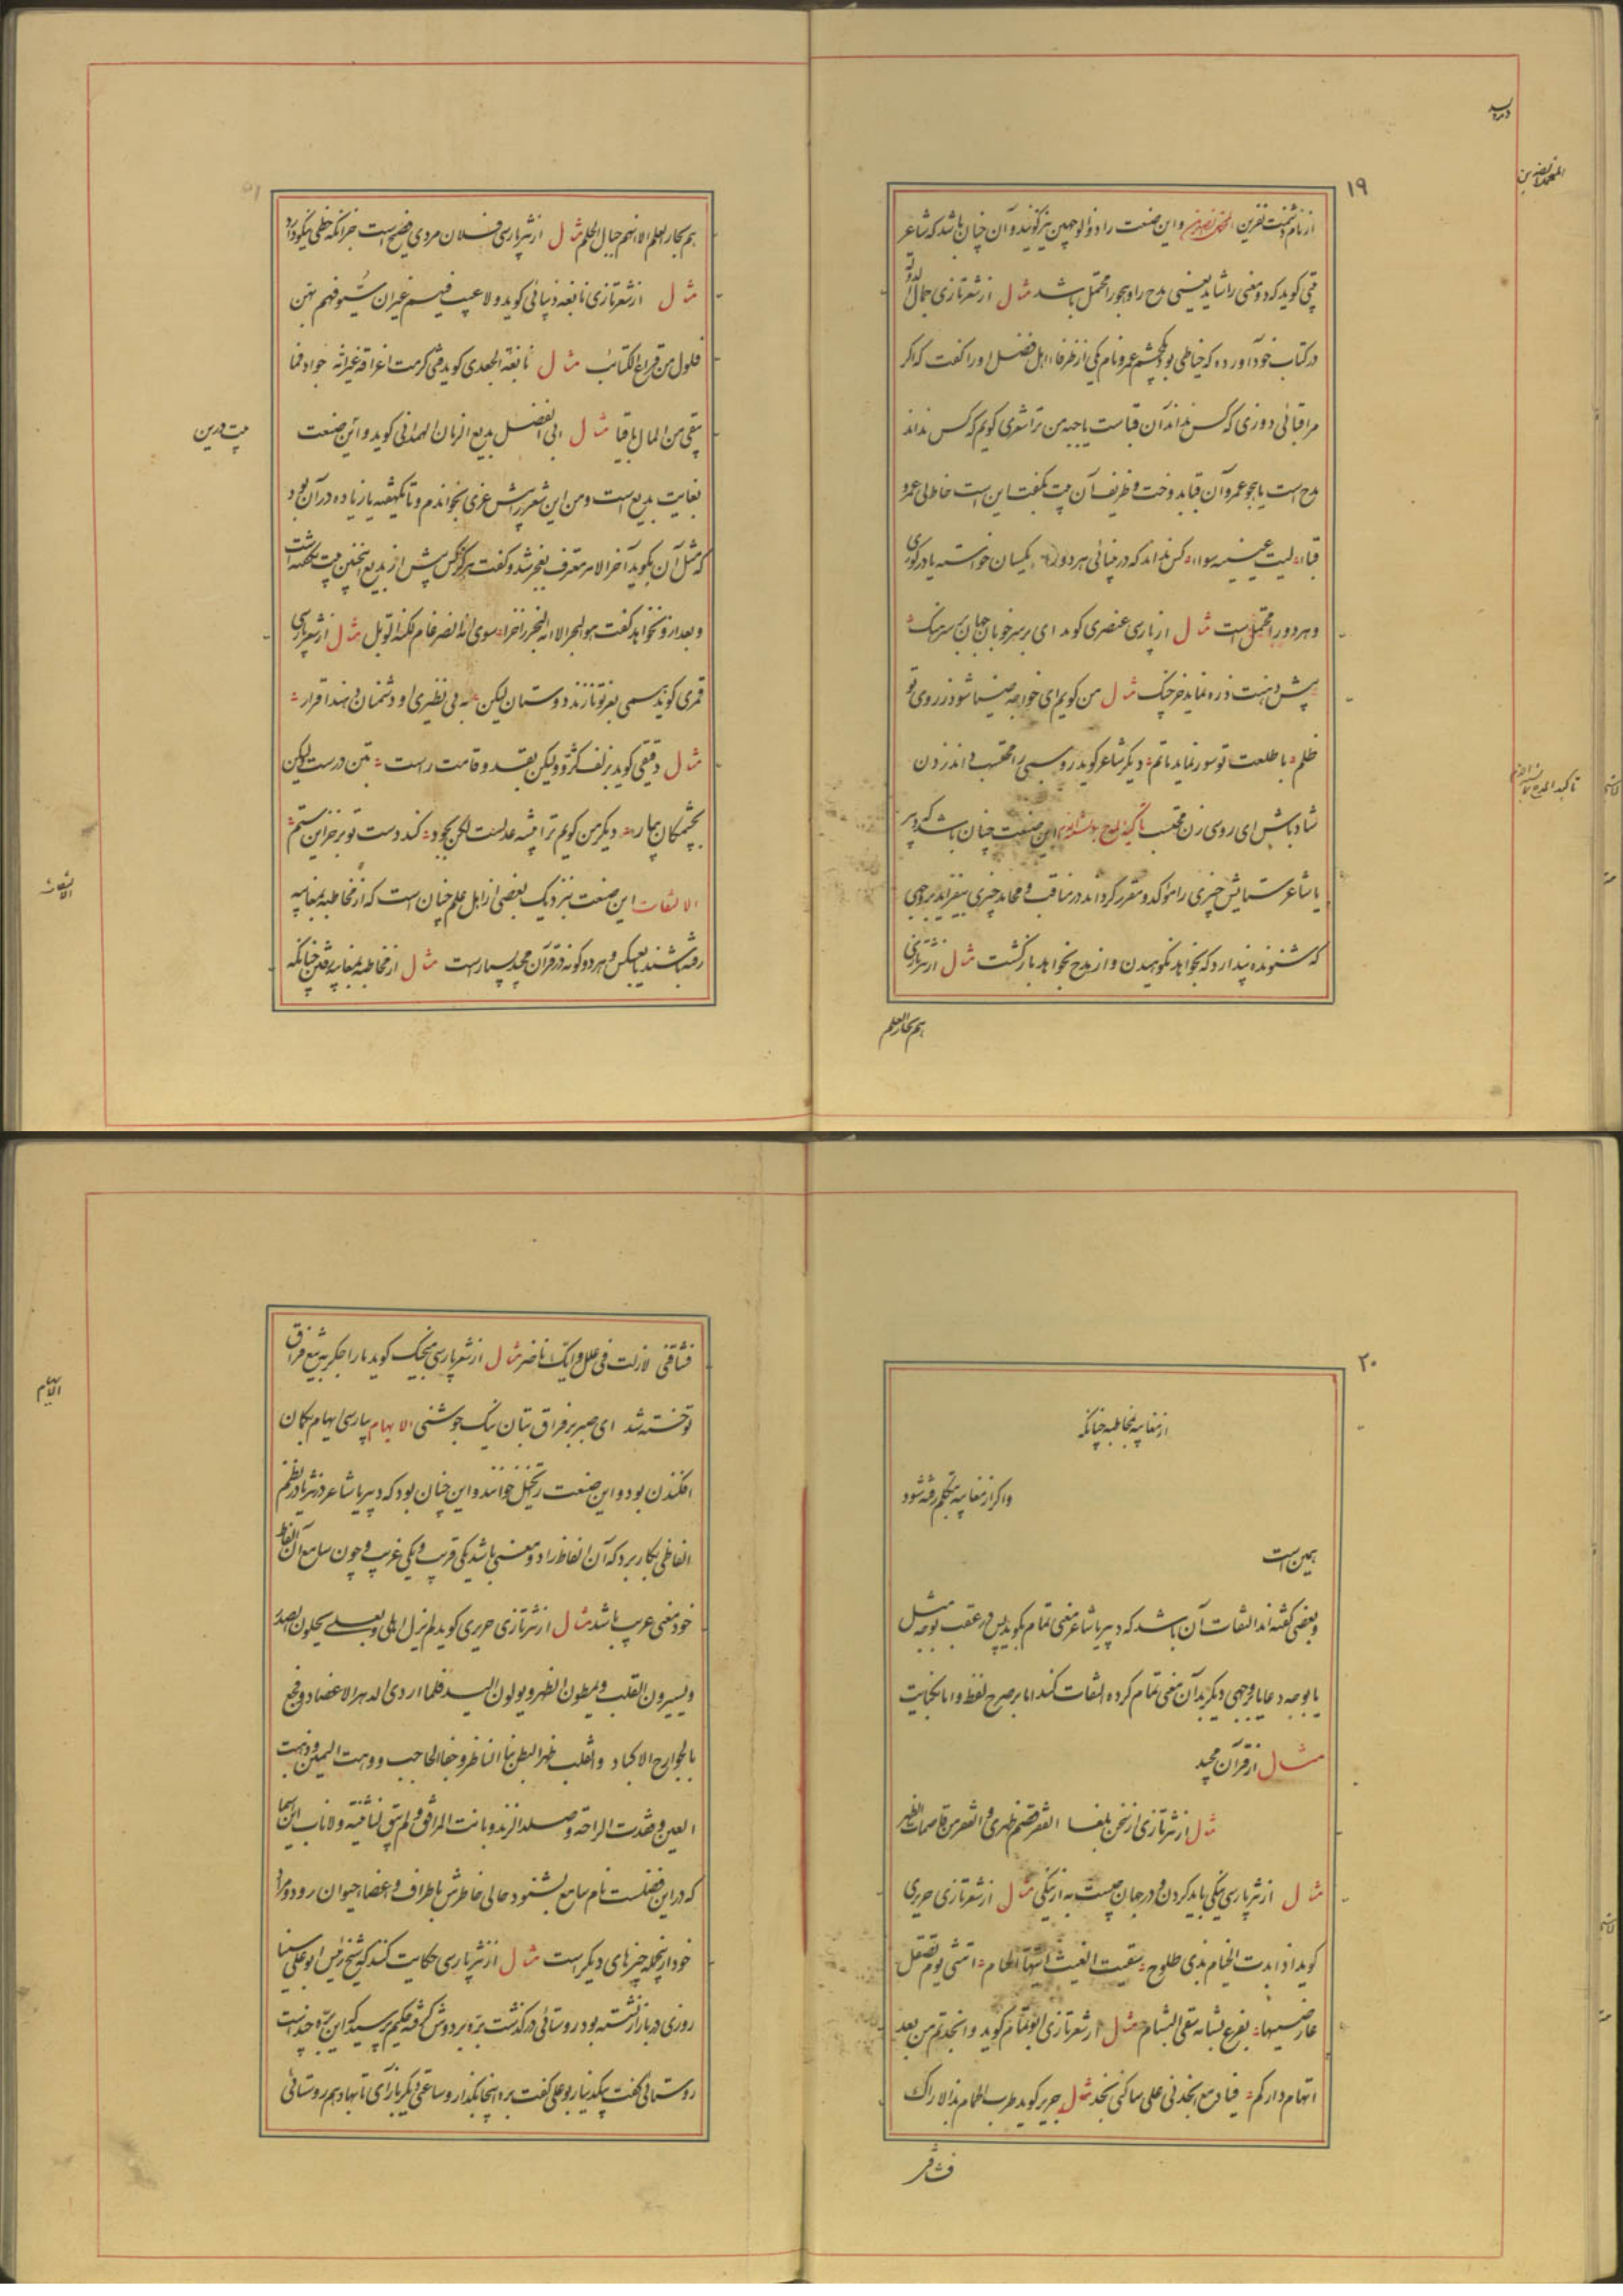 ۱۹
از نام دشمنت نفرین المحتمل الضدین و این صنعت را ذو الوجهین نیز گویند و آن چنان باشد که شاعر
بیتی گوید که دو معنی را شاید یعنی مدح را و هجو را محتمل باشد مثال از شعر تازی جمال الدوله
در کتاب خود آورده که خیاطی بود یکچشم عمرو نام یکی از ظرفا اهل فضل او را گفت که اگر
مرا قبائی دوزی که کس نداند آن قباست یا جبه من ترا شعری گویم که کس نداند
مدح است یا هجو عمرو آن قبا بدوخت و ظریف آن بیت بگفت این است خاط لی عمرو
قباء لیت عینیه سواء کس نداند که در بینائی هر دو را یکسان خواسته یا در کوری
و هر دو را محتمل است مثال از پارسی عنصری گوید ای بر سر خوبان جهان بر سرهنگ
پیش دهنت ذره نماید خرچنگ مثال من گویم ای خواجه ضیا شود ز روی تو
ظلم با طلعت تو سور نماید ماتم دیگر شاعر گوید روسبی را محتسب داند زدن
شاد باش ای روسی زن محتسب تاکید المدح بما یشبه الذم این صنعت چنان باشد که دبیر
یا شاعر ستایش چیزی را موکد و مقرر گرداند در مناقب و محامد چیزی بیفزاید بر وجهی
که شنونده پندارد که بخواهد نکوهیدن و از مدح بخواهد بازگشت مثال از نثر تازی
هم بحار العلم
هم بحار العلم الا انهم جبال الحلم مثال از نثر پارسی فلان مردی فصیح است جز آنکه خطی نیکو دارد
مثال از شعر تازی نابغه ذبیانی گوید ولا عیب فیهم غیر ان سیوفهم بهن
فلول من قراع الکتائب مثال نابغة الجعدی گوید فتی کرمت اعراقه غیر انه جواد فما
یبقی من المال باقیا مثال ابی الفضل بدیع الزمان الهمدانی گوید و این صنعت
بیت درین
بغایت بدیع است و من این شعر پیش غزی بخواندم و تا یکهفته یا زیاده در آن بود
که مثل آن بگوید آخر الامر معترف بعجز شد و گفت هرگز کس پیش از بدیع اینچنین بیت نگفته است
و بعد از او نخواهد گفت هو البحر الا انه البحر زاخرا سوی انه الضرغام لکنه الوبل مثال از شعر پارسی
قمری گوید همی بعز تو نازند دوستان لیکن به بی نظیری او دشمنان دهند اقرار
مثال دقیقی گوید بزلف کژ و لیکن بقد و قامت راست بتن درست و لیکن
بچشمکان بیمار دیگر من گویم ترا پیشه عدلست لکن بجود کند دست تو بر خزاین ستم
الالتفات این صنعت بنزدیک بعضی از اهل علم چنان است که از مخاطبه بمغایبه
رفته باشند یا بعکس و هر دو گونه در قرآن مجید بسیار است مثال از مخاطبه بمغایبه رفتن چنانکه
الالتفات
۲۰
از مغایبه بمخاطبه چنانکه
و اگر از مغایبه بتکلم رفته شود
همین است
و بعضی گفته‌اند التفات آن باشد که دبیر یا شاعر معنی تمام بگوید پس در عقب بوجه مثل
یا بوجه دعا یا بوجهی دیگر بدان معنی تمام کرده التفات کند اما بر صریح لفظ و اما بکنایت
مثال از قرآن مجید
مثال از نثر تازی از سخن بلغا الفقر قصم ظهری و الفقر من قاصمات الظهر
مثال از نثر پارسی نیکی باید کردن و در جهان چیست به از نیکی مثال از شعر تازی جریر
گوید اذا بدت الخیام بذی طلوح سقیت الغیث ایتها الخیام اتنسی یوم تصقل
عارضیها بفرع بشامة سقی البشام مثال از شعر تازی ابو تمام گوید و انجدتم من بعد
اتهام دارکم فیا دمع انجدنی علی ساکنی نجد مثال جریر گوید طرب الحمام بذی الاراک
فشاقنی
فشاقنی لازلت فی علل و ایک ناضر مثال از شعر پارسی منجیک گوید ما را جگر به تیغ فراق
تو خسته شد ای صبر بر فراق بتان نیک جوشنی الایهام پارسی ایهام بگمان
الایهام
افکندن بود و این صنعت را تخییل خوانند و این چنان بود که دبیر یا شاعر در نثر یا در نظم
الفاظی بکار برد که آن الفاظ را دو معنی باشد یکی قریب و یکی غریب و چون سامع آن الفاظ
خود معنی غریب باشد مثال از نثر تازی حریری گوید لم یزل اهلی و بعلی یحلون الصدر
و یسیرون القلب و یمطون الظهر و یولون الید فلما اردی الدهر الاعضاد و فجع
بالجوارح الاکباد و انقلب ظهرا لبطن نبا الناظر و جفا الحاجب و وهت الیمین و ذهبت
العین و فقدت الراحة و صلد الزند و بانت المرافق و لم یبق لنا ثنیة و لا ناب این اسما
که در این فصلست نام سامع بشنود حالی خاطرش باطراف و اعضا حیوان رود و مراد
خود از جمله چیزهای دیگر است مثال از نثر پارسی حکایت کنند که شیخ رئیس ابو علی سینا
روزی در بازار نشسته بود روستائی در گذشت بره بر دوش گرفته حکیم پرسید که این بره بچند است
روستائی گفت بیکدینار بو علی گفت بره اینجا بگذار و ساعتی دیگر باز آی تا بها دهم روستائی